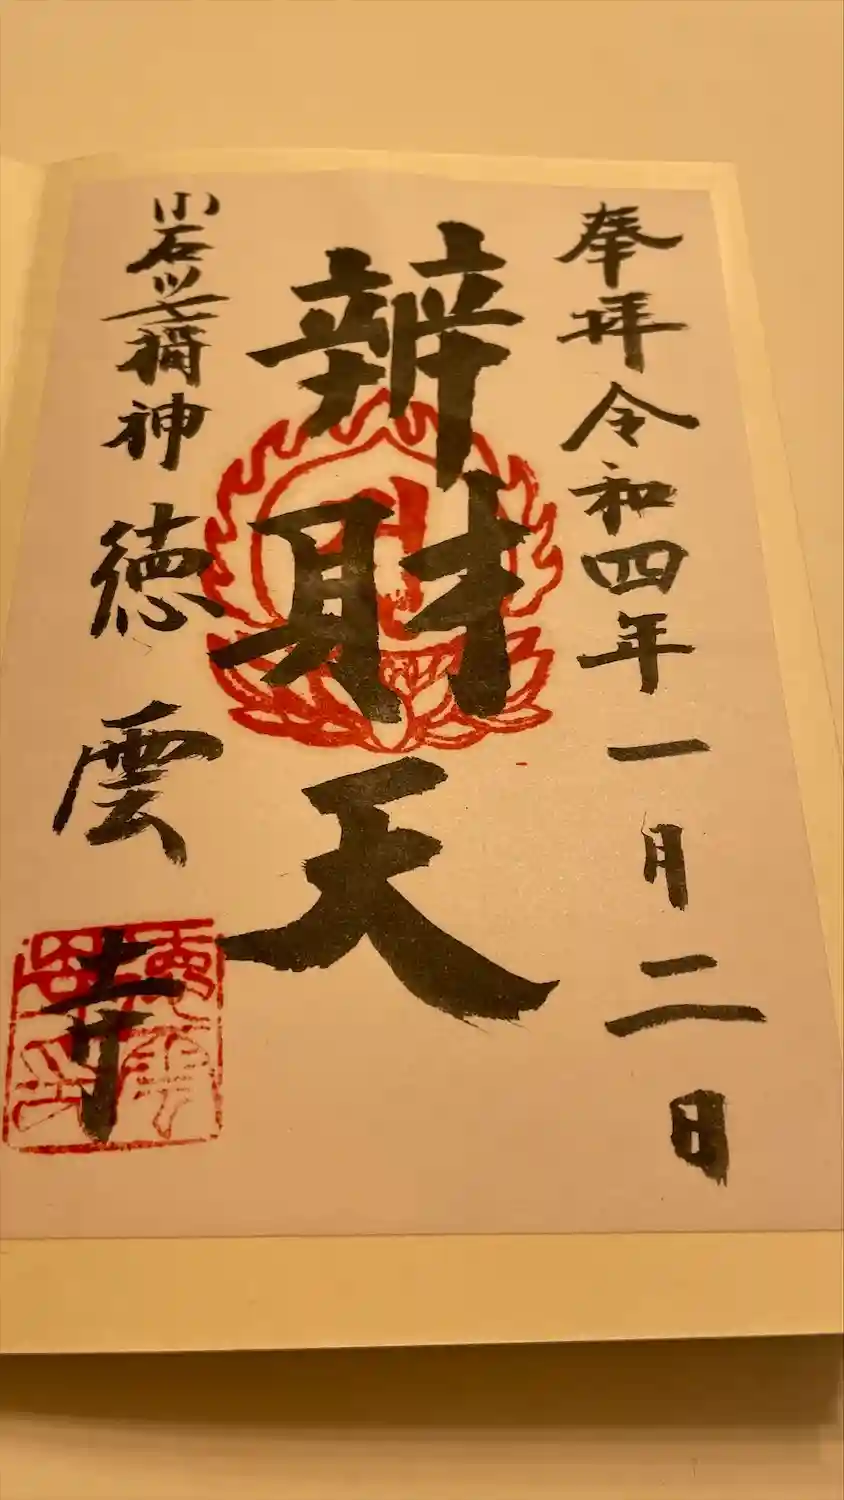 奉拝 令和四年一月二日
辨財天
小石川七福神 徳雲寺